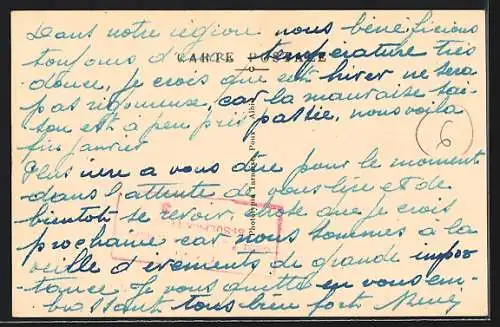 Dans notre région nous bénéficions
toujours d'une température très
CARTE POSTALE
douce, je crois que cet hiver ne sera
pas rigoureux, car la mauvaise sai-
son est à peu près passée, nous voilà
fin janvier
Plus rien a vous dire pour le moment
dans l'attente de vous lire et de
bientôt se revoir, chose que je crois
prochaine car nous sommes à la
veille d'évenements de grande impor
tance. Je vous quitte en vous em-
brassant tous bien fort
6